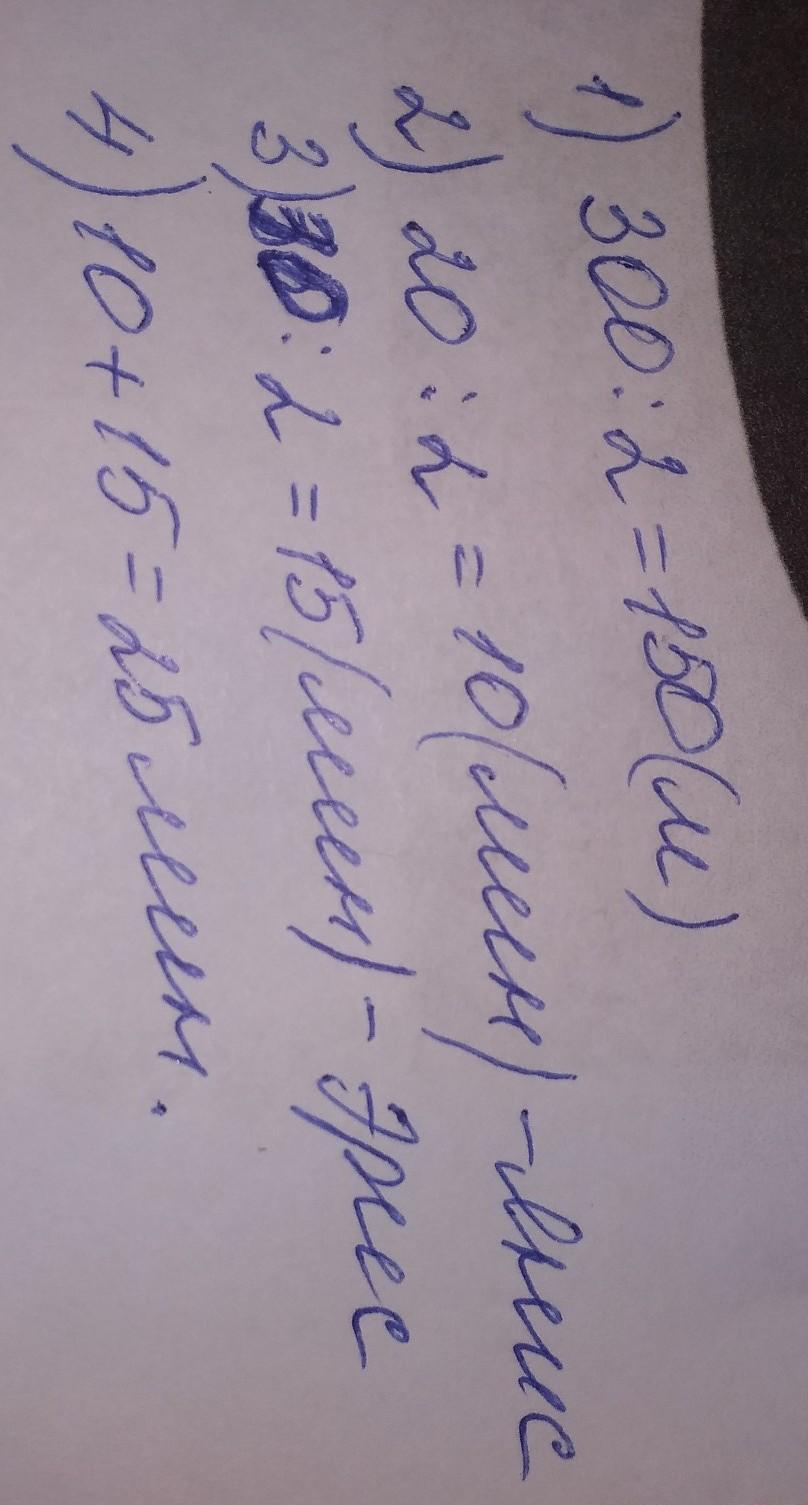 1) 300 : 2 = 150 (м)
2) 20 : 2 = 10 (мин) - Анис
3) 30 : 2 = 15 (мин) -
4) 10 + 15 = 25 мин.